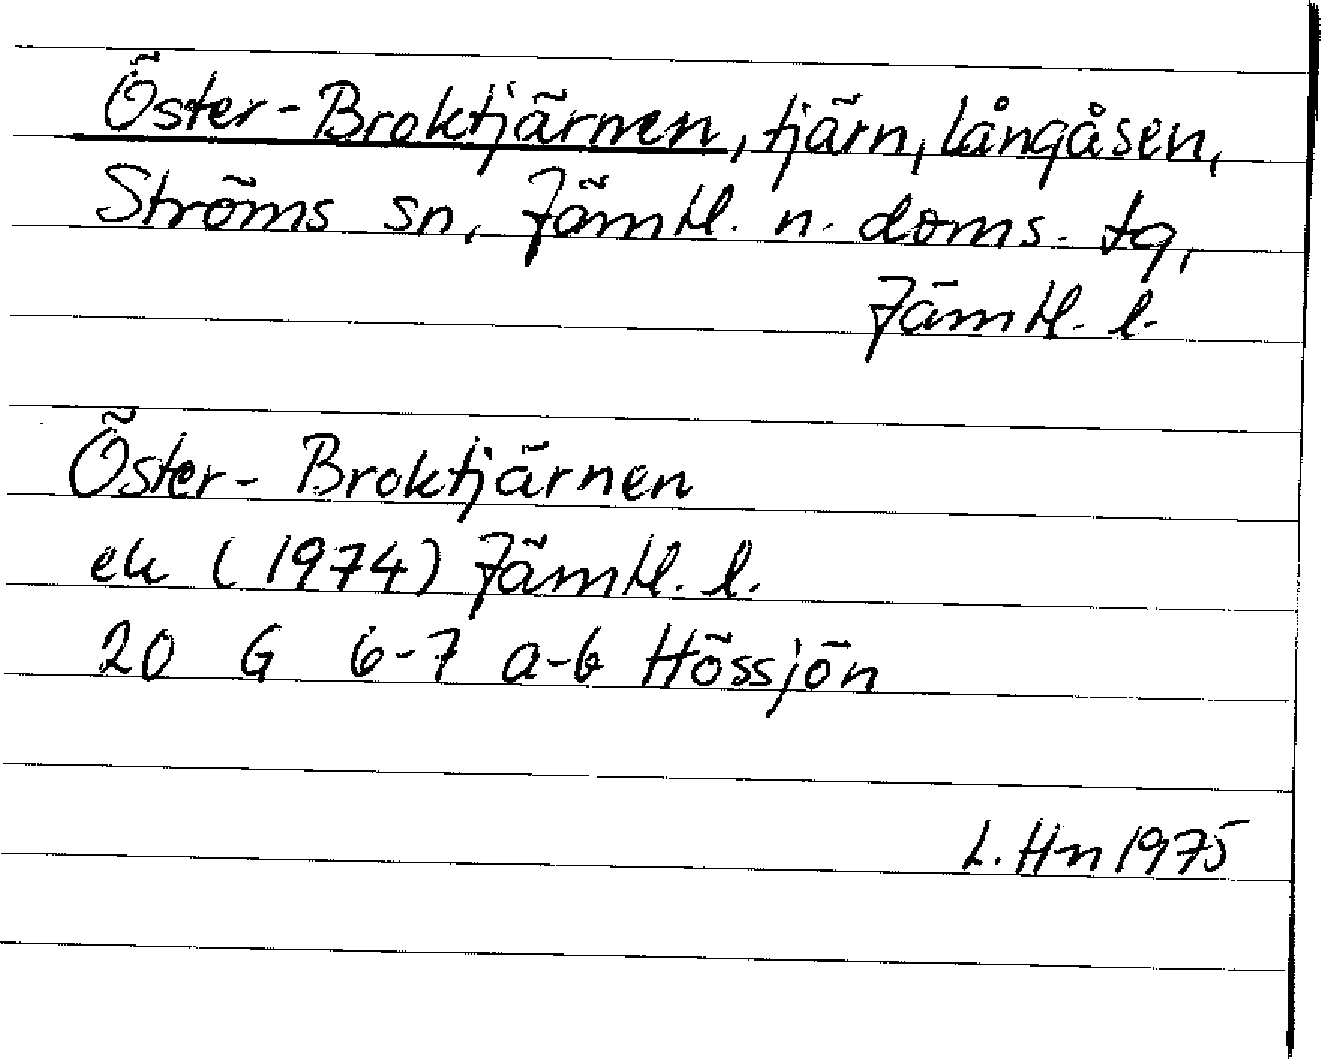 Öster-Broktjärnen, tjärn, Långåsen,
Ströms sn, Jämtl. n. doms. tg,
Jämtl. l.
Öster- Broktjärnen
ek (1974) Jämtl. l.
20 G 6-7 a-b Hössjön
L. Hn 1975